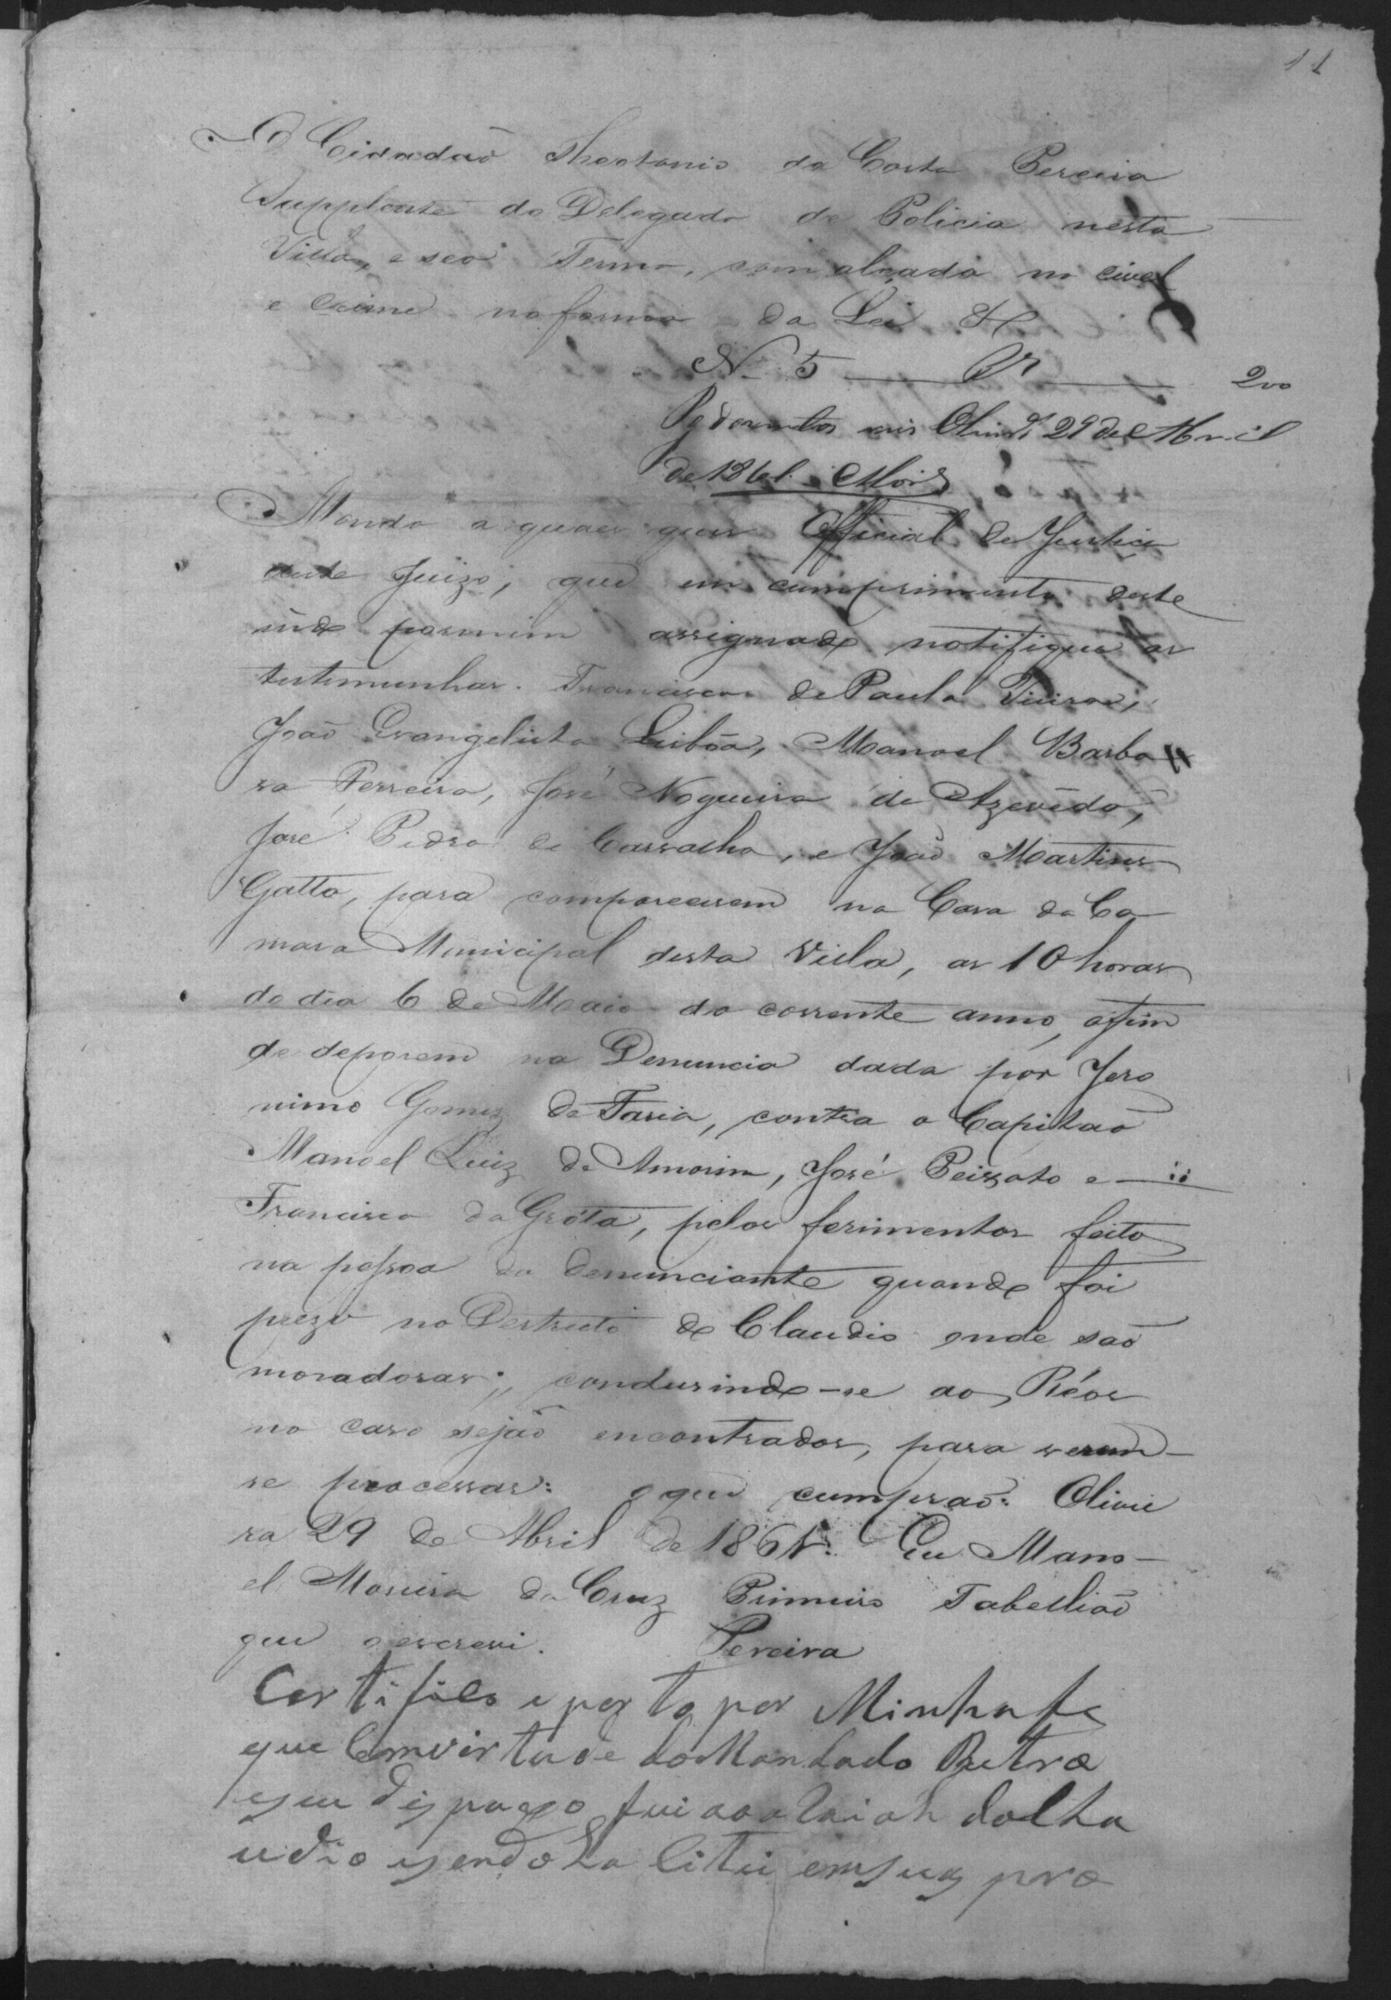 11
O Cidadão Theotonio da Costa Pereira
Supplente do Delegado de Policia nesta
Villa, e seo Termo, com alçada no civel
e crime na forma da Lei &
N. 5 200
29 de Abril
de 1861.
Mando a quaes quer Official de Justiça
deste Juizo, que em cumprimento deste
indo por mim assignado notifique as
testimunhas. Francisco de Paula Vieira,
João Evangelista Lisbôa, Manoel Barbo
sa Ferreira, José Nogueira de Azevêdo,
José Pedro de Carvalho, e João Martins
Gatto, para comparecerem na Casa da Ca
mara Municipal desta Villa, as 10 horas
do dia 6 de Maio do corrente anno, afim
de deporem na Denuncia dada por Jero
nimo Gomes de Faria, contra o Capitão
Manoel Luiz de Amorim, José Peixoto e
Francisco da Gróta, pelos ferimentos feito
na pessoa do denunciante quando foi
prezo no Destricto de Claudio onde são
moradores; conduzindo-se aos Réos
no caso sejão encontrados, para verem-
se processar: o que cumprão: Olivei
ra 29 de Abril de 1861. Eu Mano-
el Moreira da Cruz Primeiro Tabellião
que o escrevi. Pereira
Certifico e porto por Minha fe
que Em virtude do Mandado Retro
e seu Despaxo fui ao a Raial do Cla
udio e sendo la Citei em suas pro